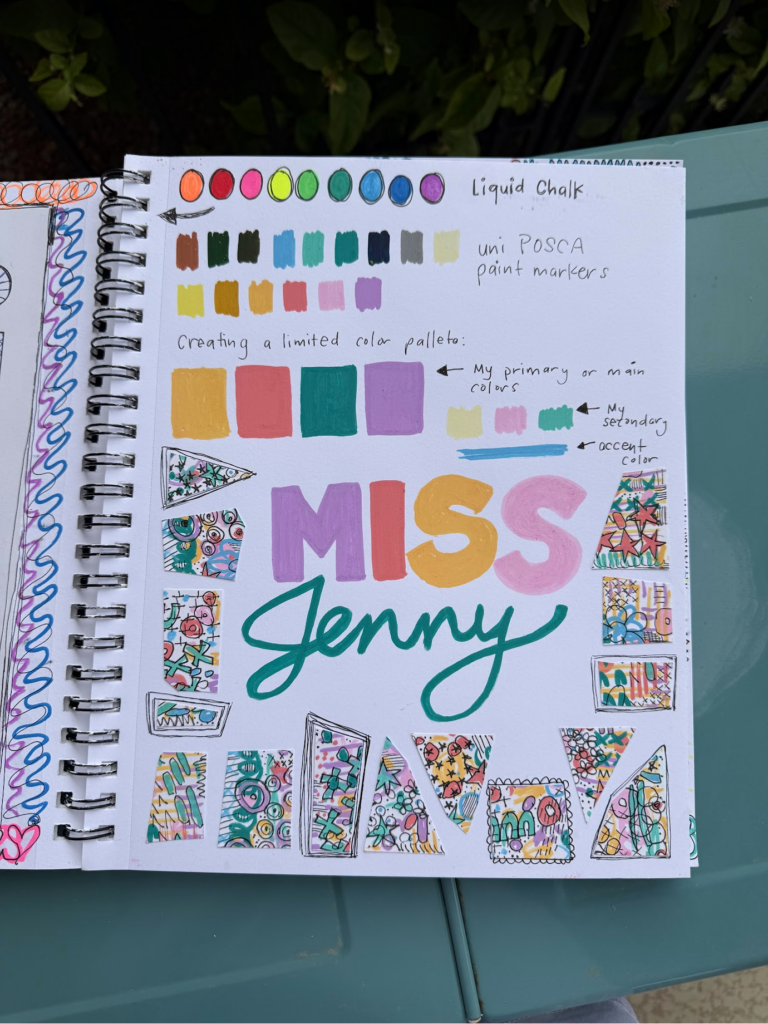 Liquid Chalk
uni POSCA
paint markers
Creating a limited color palleto:
My primary or main
colors
My
secondary
accent
color
MISS
Jenny